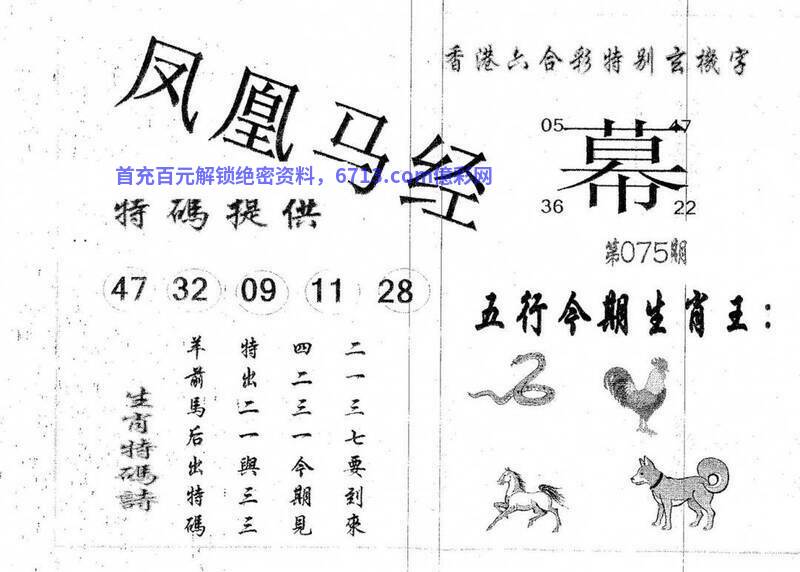 凤凰马经
香港六合彩特别玄機字
05 47
幕
36 22
第075期
首充百元解锁绝密资料，6713.com億彩网
特碼提供
47 32 09 11 28
五行今期生肖王：
二一三七要到來
四二三一今期見
特出二一與三三
羊前馬后出特碼
生肖特碼詩